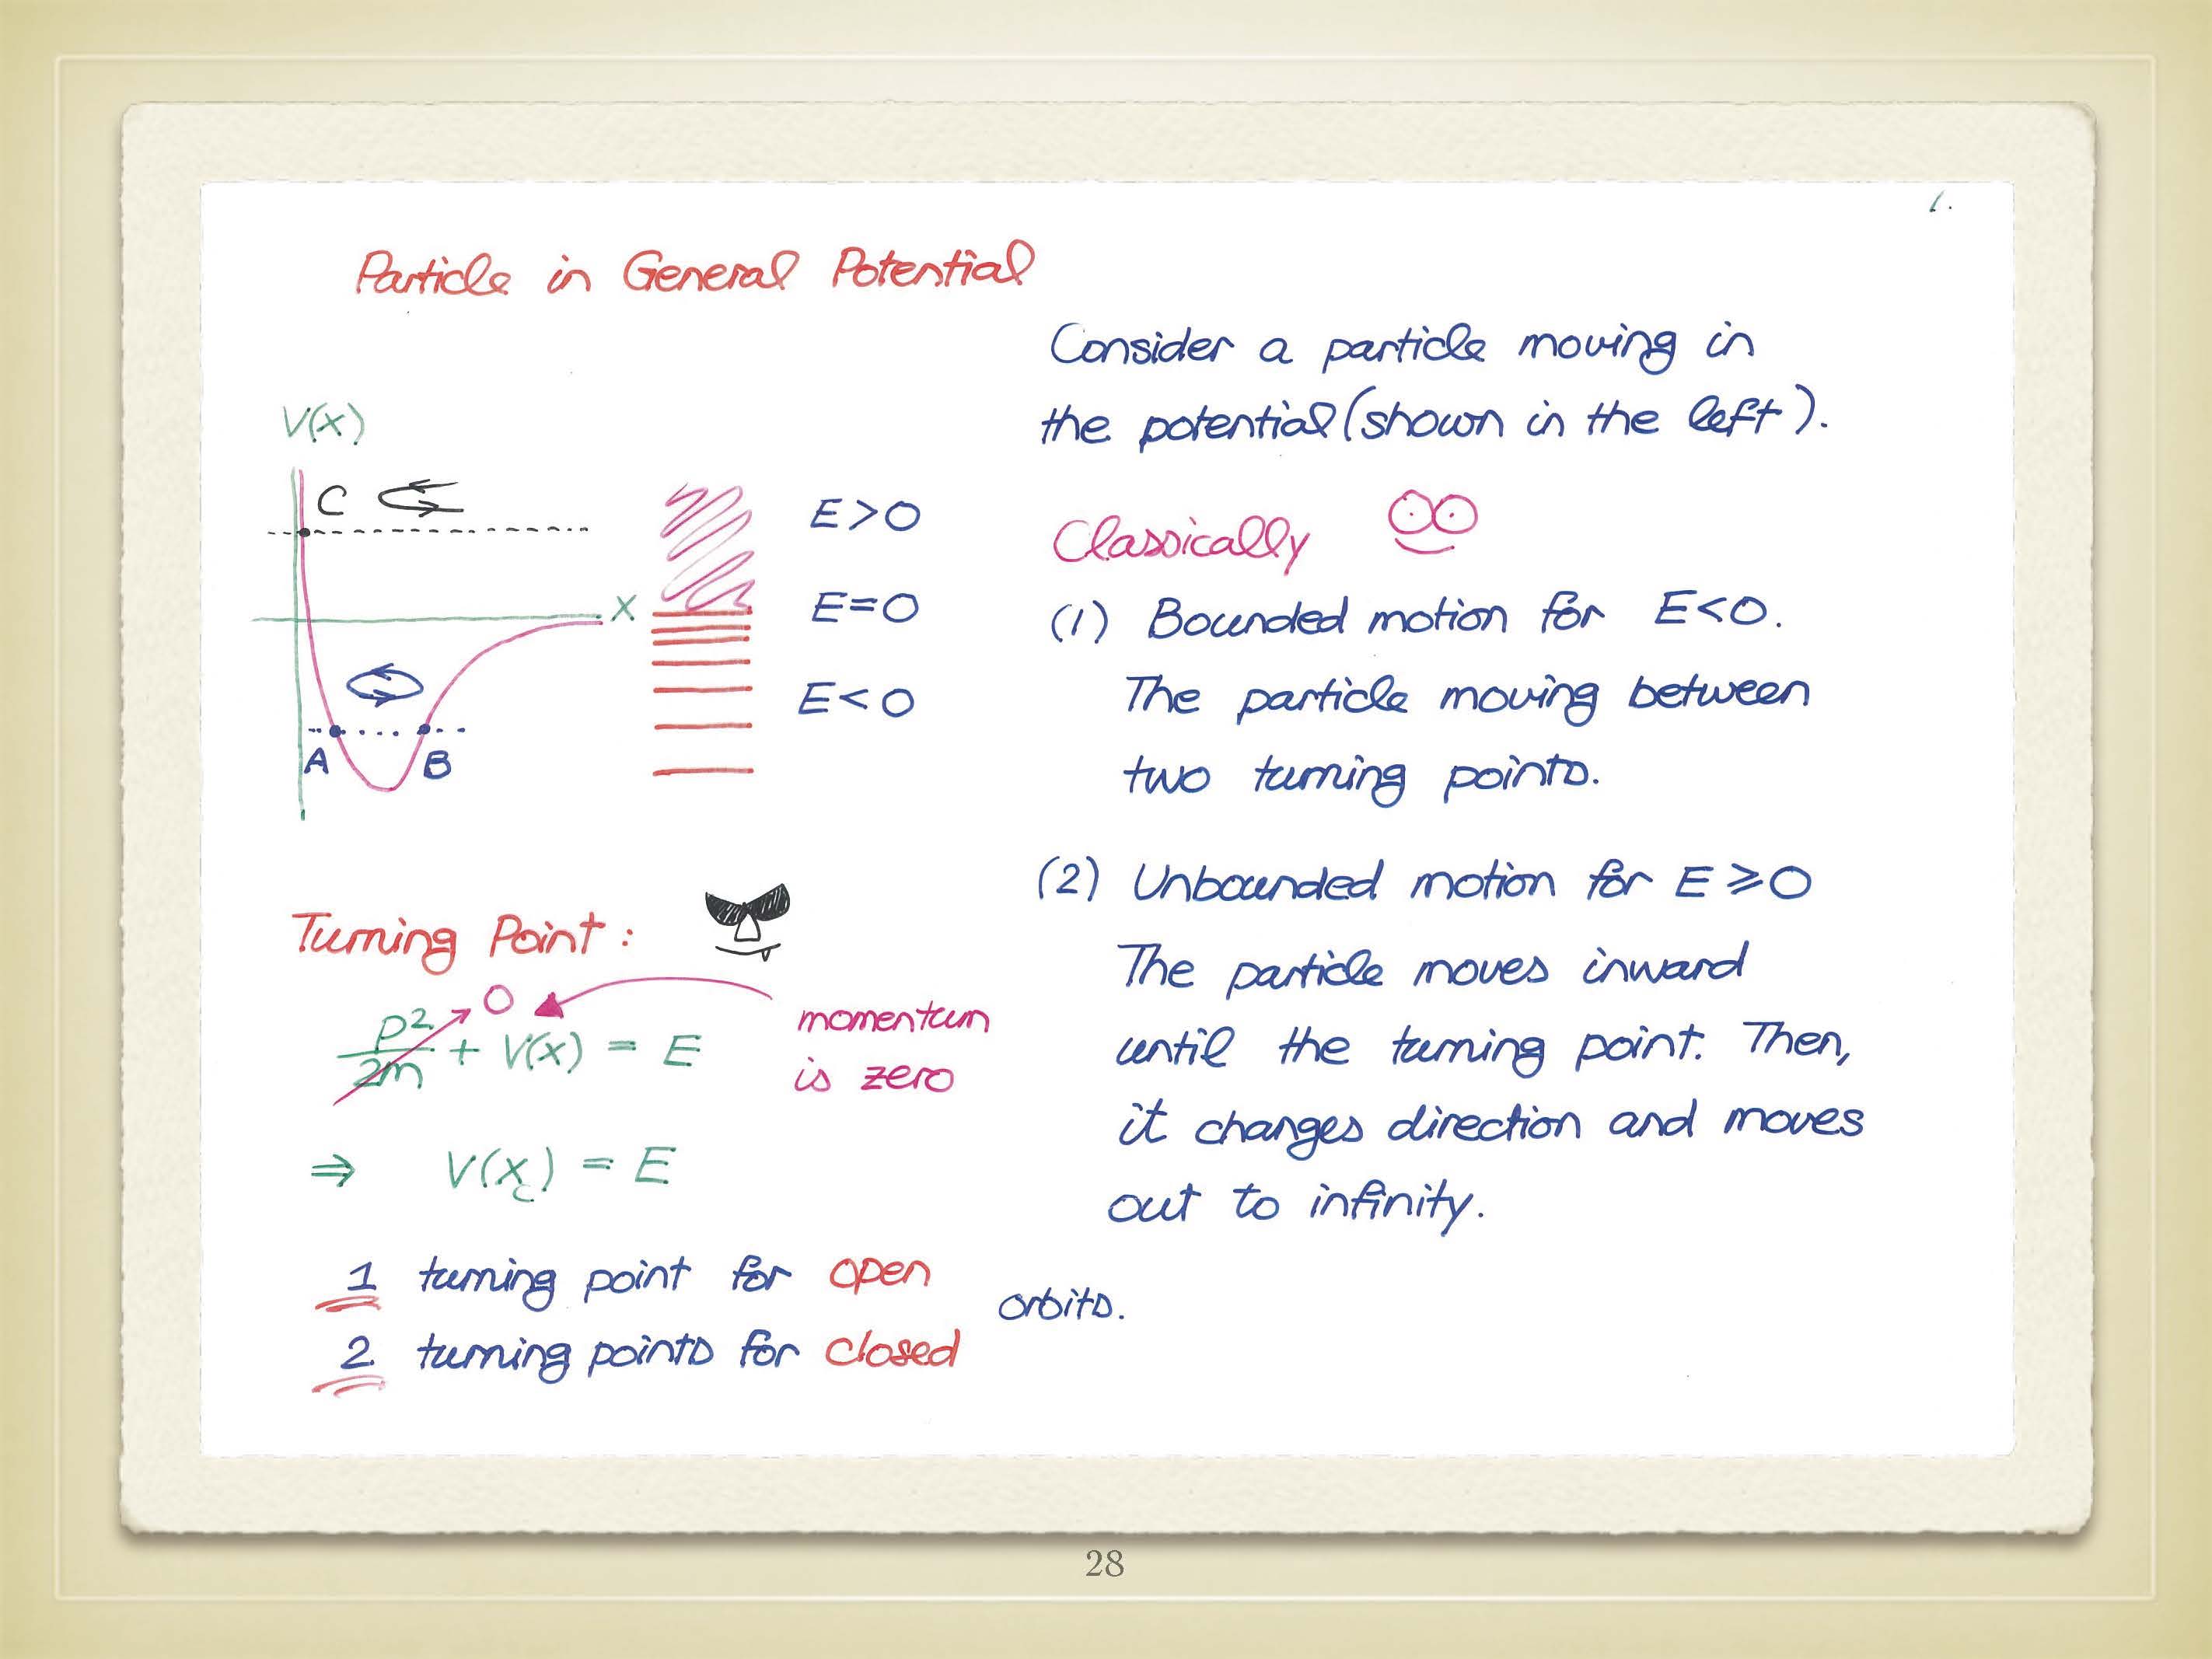 1.
Particle in General Potential
V(x)
C
X
A
B
E>0
E=0
E<0
Turning Point :
p²/2m → 0 + V(x) = E
momentum
is zero
⇒ V(x_c) = E
1 turning point for open
2 turning points for closed
orbits.
Consider a particle moving in
the potential (shown in the left).
Classically
(1) Bounded motion for E<0.
The particle moving between
two turning points.
(2) Unbounded motion for E⩾0
The particle moves inward
until the turning point. Then,
it changes direction and moves
out to infinity.
28